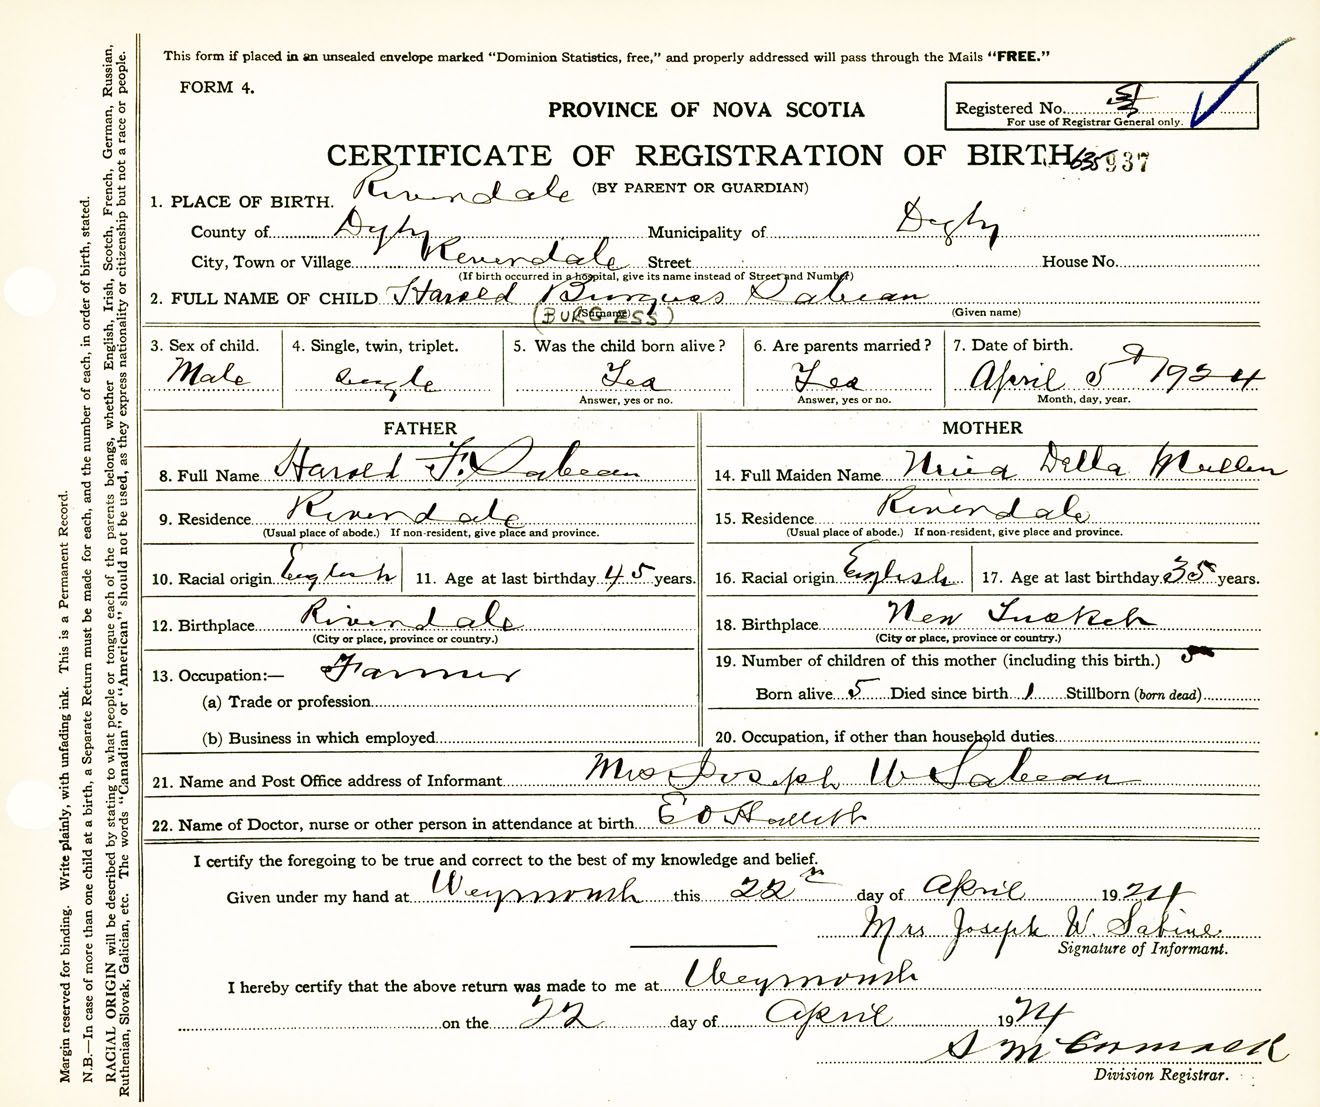 This form if placed in an unsealed envelope marked "Dominion Statistics, free," and properly addressed will pass through the Mails "FREE."
FORM 4.
PROVINCE OF NOVA SCOTIA
Registered No.
For use of Registrar General only.
CERTIFICATE OF REGISTRATION OF BIRTH 635937
(BY PARENT OR GUARDIAN)
1. PLACE OF BIRTH. Riverdale
County of Digby Municipality of Digby
City, Town or Village Riverdale Street House No.
(If birth occurred in a hospital, give its name instead of Street and Number)
2. FULL NAME OF CHILD Harold Burgess Sabean
(Surname) (Given name)
(BURGESS)
3. Sex of child. 4. Single, twin, triplet. 5. Was the child born alive? 6. Are parents married? 7. Date of birth.
Male single Yes Yes April 5 1924
Answer, yes or no. Answer, yes or no. Month, day, year.
FATHER MOTHER
8. Full Name Harold F. Sabean 14. Full Maiden Name Della Mullen
9. Residence Riverdale 15. Residence Riverdale
(Usual place of abode.) If non-resident, give place and province. (Usual place of abode.) If non-resident, give place and province.
10. Racial origin English 11. Age at last birthday 45 years. 16. Racial origin English 17. Age at last birthday 35 years.
12. Birthplace Riverdale 18. Birthplace New Tusket
(City or place, province or country.) (City or place, province or country.)
13. Occupation:— Farmer 19. Number of children of this mother (including this birth.) 5
(a) Trade or profession Born alive 5 Died since birth 1 Stillborn (born dead)
(b) Business in which employed 20. Occupation, if other than household duties
21. Name and Post Office address of Informant Mrs Joseph W Sabean
22. Name of Doctor, nurse or other person in attendance at birth E O Hallett
I certify the foregoing to be true and correct to the best of my knowledge and belief.
Given under my hand at Weymouth this 22 day of April 1924
Mrs Joseph W. Sabine
Signature of Informant.
I hereby certify that the above return was made to me at Weymouth
on the 22 day of April 1924
S McCormack
Division Registrar.
Margin reserved for binding. Write plainly, with unfading ink. This is a Permanent Record.
N.B.—In case of more than one child at a birth, a Separate Return must be made for each, and the number of each, in order of birth, stated.
RACIAL ORIGIN will be described by stating to what people or tongue each of the parents belongs, whether English, Irish, Scotch, French, German, Russian,
Ruthenian, Slovak, Galician, etc. The words "Canadian" or "American" should not be used, as they express nationality or citizenship but not a race or people.